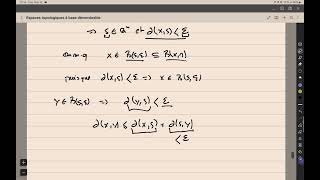 Espaces topologiques à base dénombrable
=> ξ ∈ Qⁿ et d(x,ξ) < ε
x ∈ B(ξ,ε) ⊆ B(x,r)
puisque d(x,ξ) < ε => x ∈ B(ξ,ε)
y ∈ B(ξ,ε) => d(y,ξ) < ε
d(x,y) ≤ d(x,ξ) + d(ξ,y)
< ε